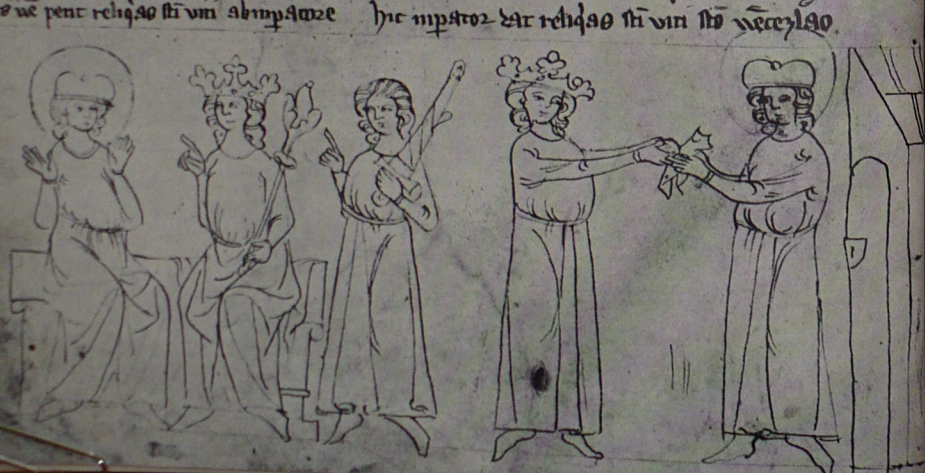 petit reliq̄as sc̄i viti ab imp̄atore hic inp̄ator dat reliq̄as sc̄i viti sc̄o wēcezlao.